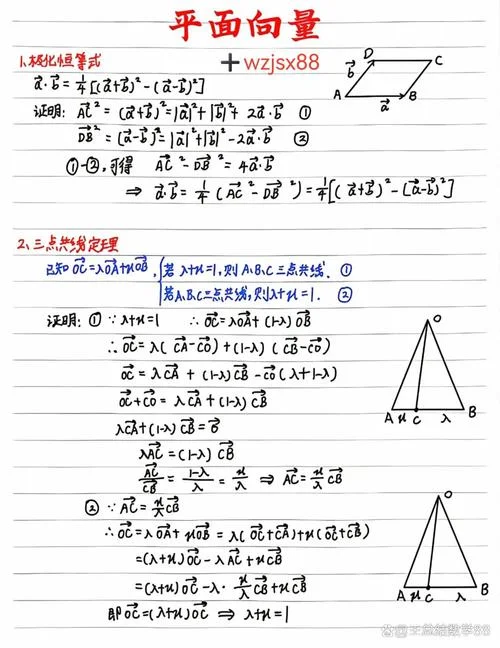 平面向量
+wzjsx88
1、极化恒等式
a⃗·b⃗=1/4[(a⃗+b⃗)²-(a⃗-b⃗)²]
D C
b⃗
A a⃗ B
证明: AC⃗²=(a⃗+b⃗)²=|a⃗|²+|b⃗|²+2a⃗·b⃗ ①
DB⃗²=(a⃗-b⃗)²=|a⃗|²+|b⃗|²-2a⃗·b⃗ ②
①-②,可得 AC⃗²-DB⃗²=4a⃗·b⃗
⇒ a⃗·b⃗=1/4(AC⃗²-DB⃗²)=1/4[(a⃗+b⃗)²-(a⃗-b⃗)²]
2、三点共线定理
已知OC⃗=λOA⃗+μOB⃗, {若λ+μ=1,则A、B、C三点共线. ①
若A、B、C三点共线,则λ+μ=1. ②
证明: ①∵λ+μ=1 ∴OC⃗=λOA⃗+(1-λ)OB⃗
∴OC⃗=λ(CA⃗-CO⃗)+(1-λ)(CB⃗-CO⃗)
OC⃗=λCA⃗+(1-λ)CB⃗-CO⃗(λ+1-λ)
OC⃗+CO⃗=λCA⃗+(1-λ)CB⃗
λCA⃗+(1-λ)CB⃗=0⃗
λAC⃗=(1-λ)CB⃗
AC⃗/CB⃗=(1-λ)/λ=μ/λ ⇒ AC⃗=μ/λ CB⃗
O
A μ C λ B
②∵AC⃗=μ/λ CB⃗
∴OC⃗=λOA⃗+μOB⃗=λ(OC⃗+CA⃗)+μ(OC⃗+CB⃗)
=(λ+μ)OC⃗-λAC⃗+μCB⃗
=(λ+μ)OC⃗-λ·μ/λ CB⃗+μCB⃗
即OC⃗=(λ+μ)OC⃗ ⇒ λ+μ=1
O
A μ C λ B